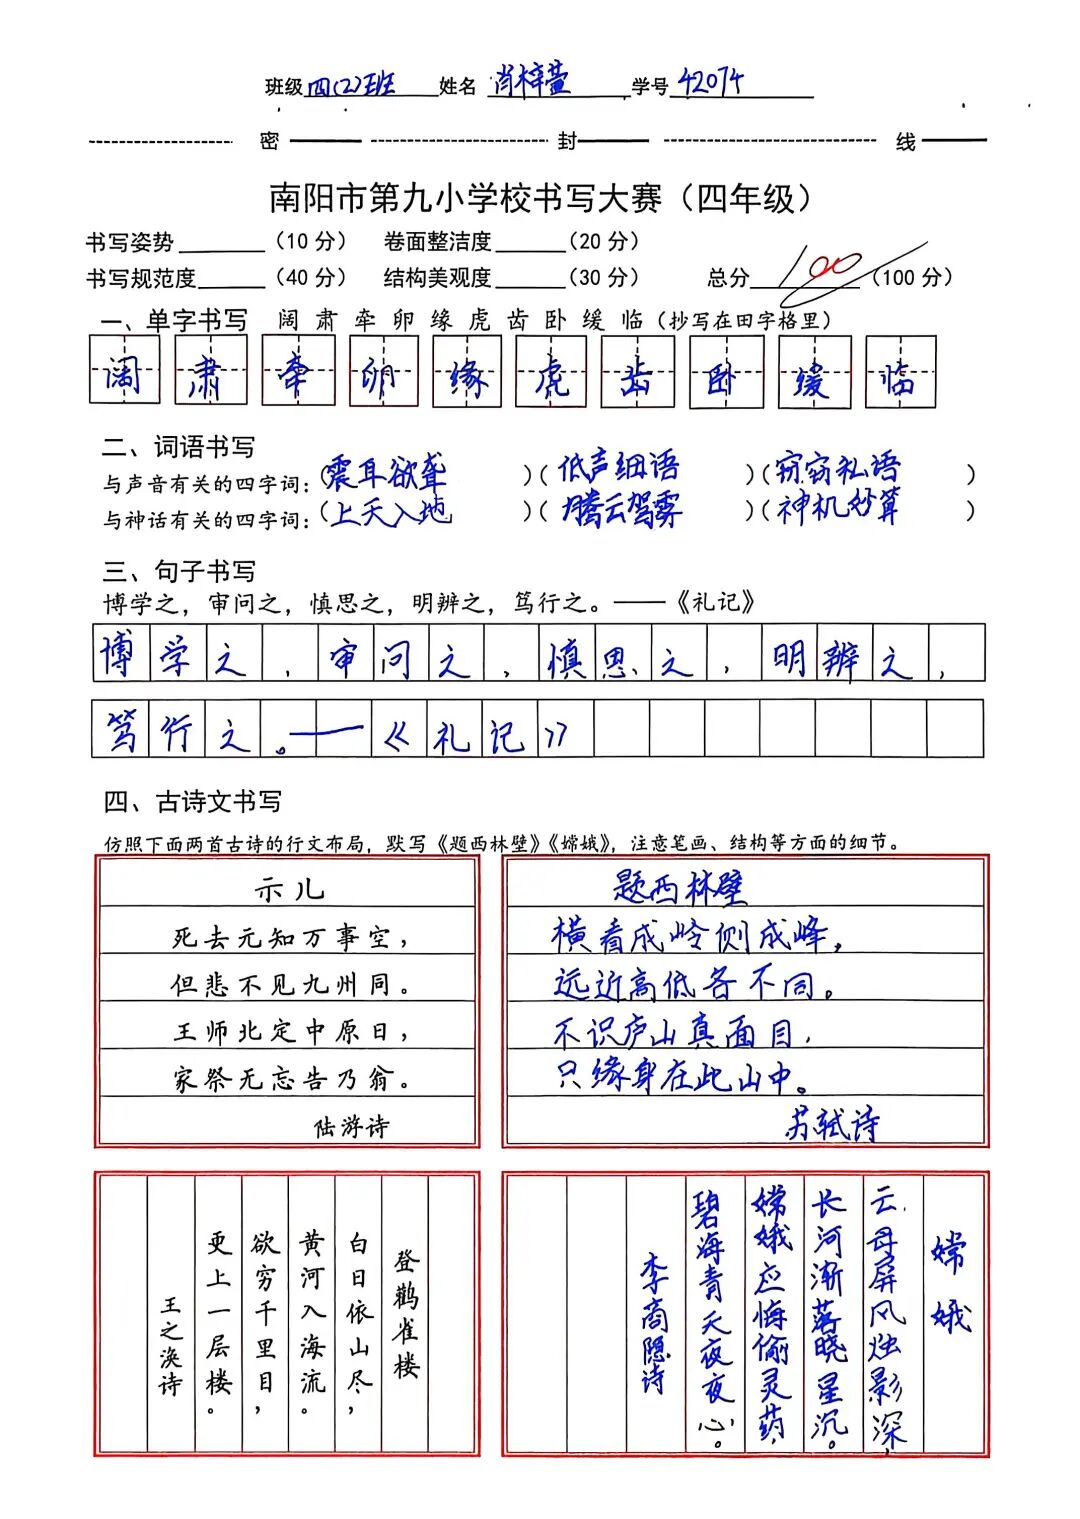 班级四(2)班 姓名 肖梓萱 学号 42074
密 封 线
南阳市第九小学校书写大赛（四年级）
书写姿势______（10 分） 卷面整洁度______（20 分）
书写规范度______（40 分） 结构美观度______（30 分） 总分 100 （100 分）
一、单字书写 阔 肃 牵 卵 缘 虎 齿 卧 缓 临（抄写在田字格里）
阔 肃 牵 卵 缘 虎 齿 卧 缓 临
二、词语书写
与声音有关的四字词：（震耳欲聋）（低声细语）（窃窃私语）
与神话有关的四字词：（上天入地）（腾云驾雾）（神机妙算）
三、句子书写
博学之，审问之，慎思之，明辨之，笃行之。——《礼记》
博学之，审问之，慎思之，明辨之，
笃行之。——《礼记》
四、古诗文书写
仿照下面两首古诗的行文布局，默写《题西林壁》《嫦娥》，注意笔画、结构等方面的细节。
示儿
死去元知万事空，
但悲不见九州同。
王师北定中原日，
家祭无忘告乃翁。
陆游诗
题西林壁
横看成岭侧成峰，
远近高低各不同。
不识庐山真面目，
只缘身在此山中。
苏轼诗
登鹳雀楼
白日依山尽，
黄河入海流。
欲穷千里目，
更上一层楼。
王之涣诗
嫦娥
云母屏风烛影深，
长河渐落晓星沉。
嫦娥应悔偷灵药，
碧海青天夜夜心。
李商隐诗